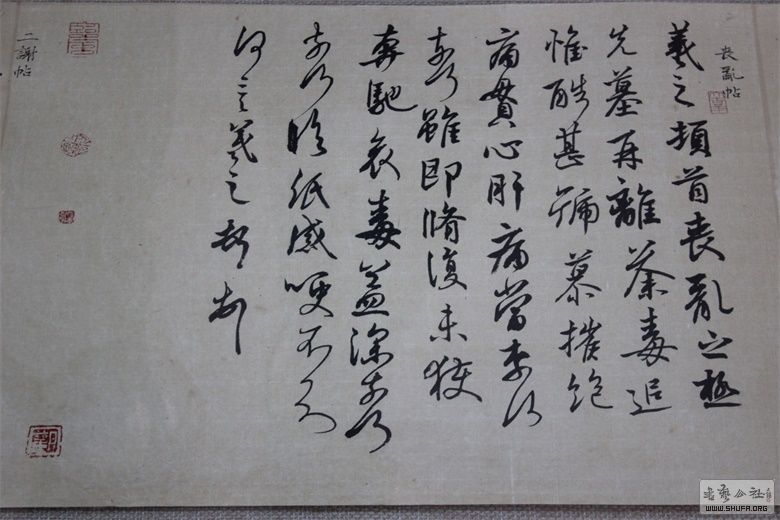 喪亂帖
羲之頓首喪亂之極
先墓再離荼毒追
惟酷甚號慕摧絕
痛貫心肝痛當奈何
奈何雖即脩復未獲
奔馳哀毒益深奈何
奈何臨紙感哽不知
何言羲之頓首頓首
二謝帖
WWW.SHUFA.ORG